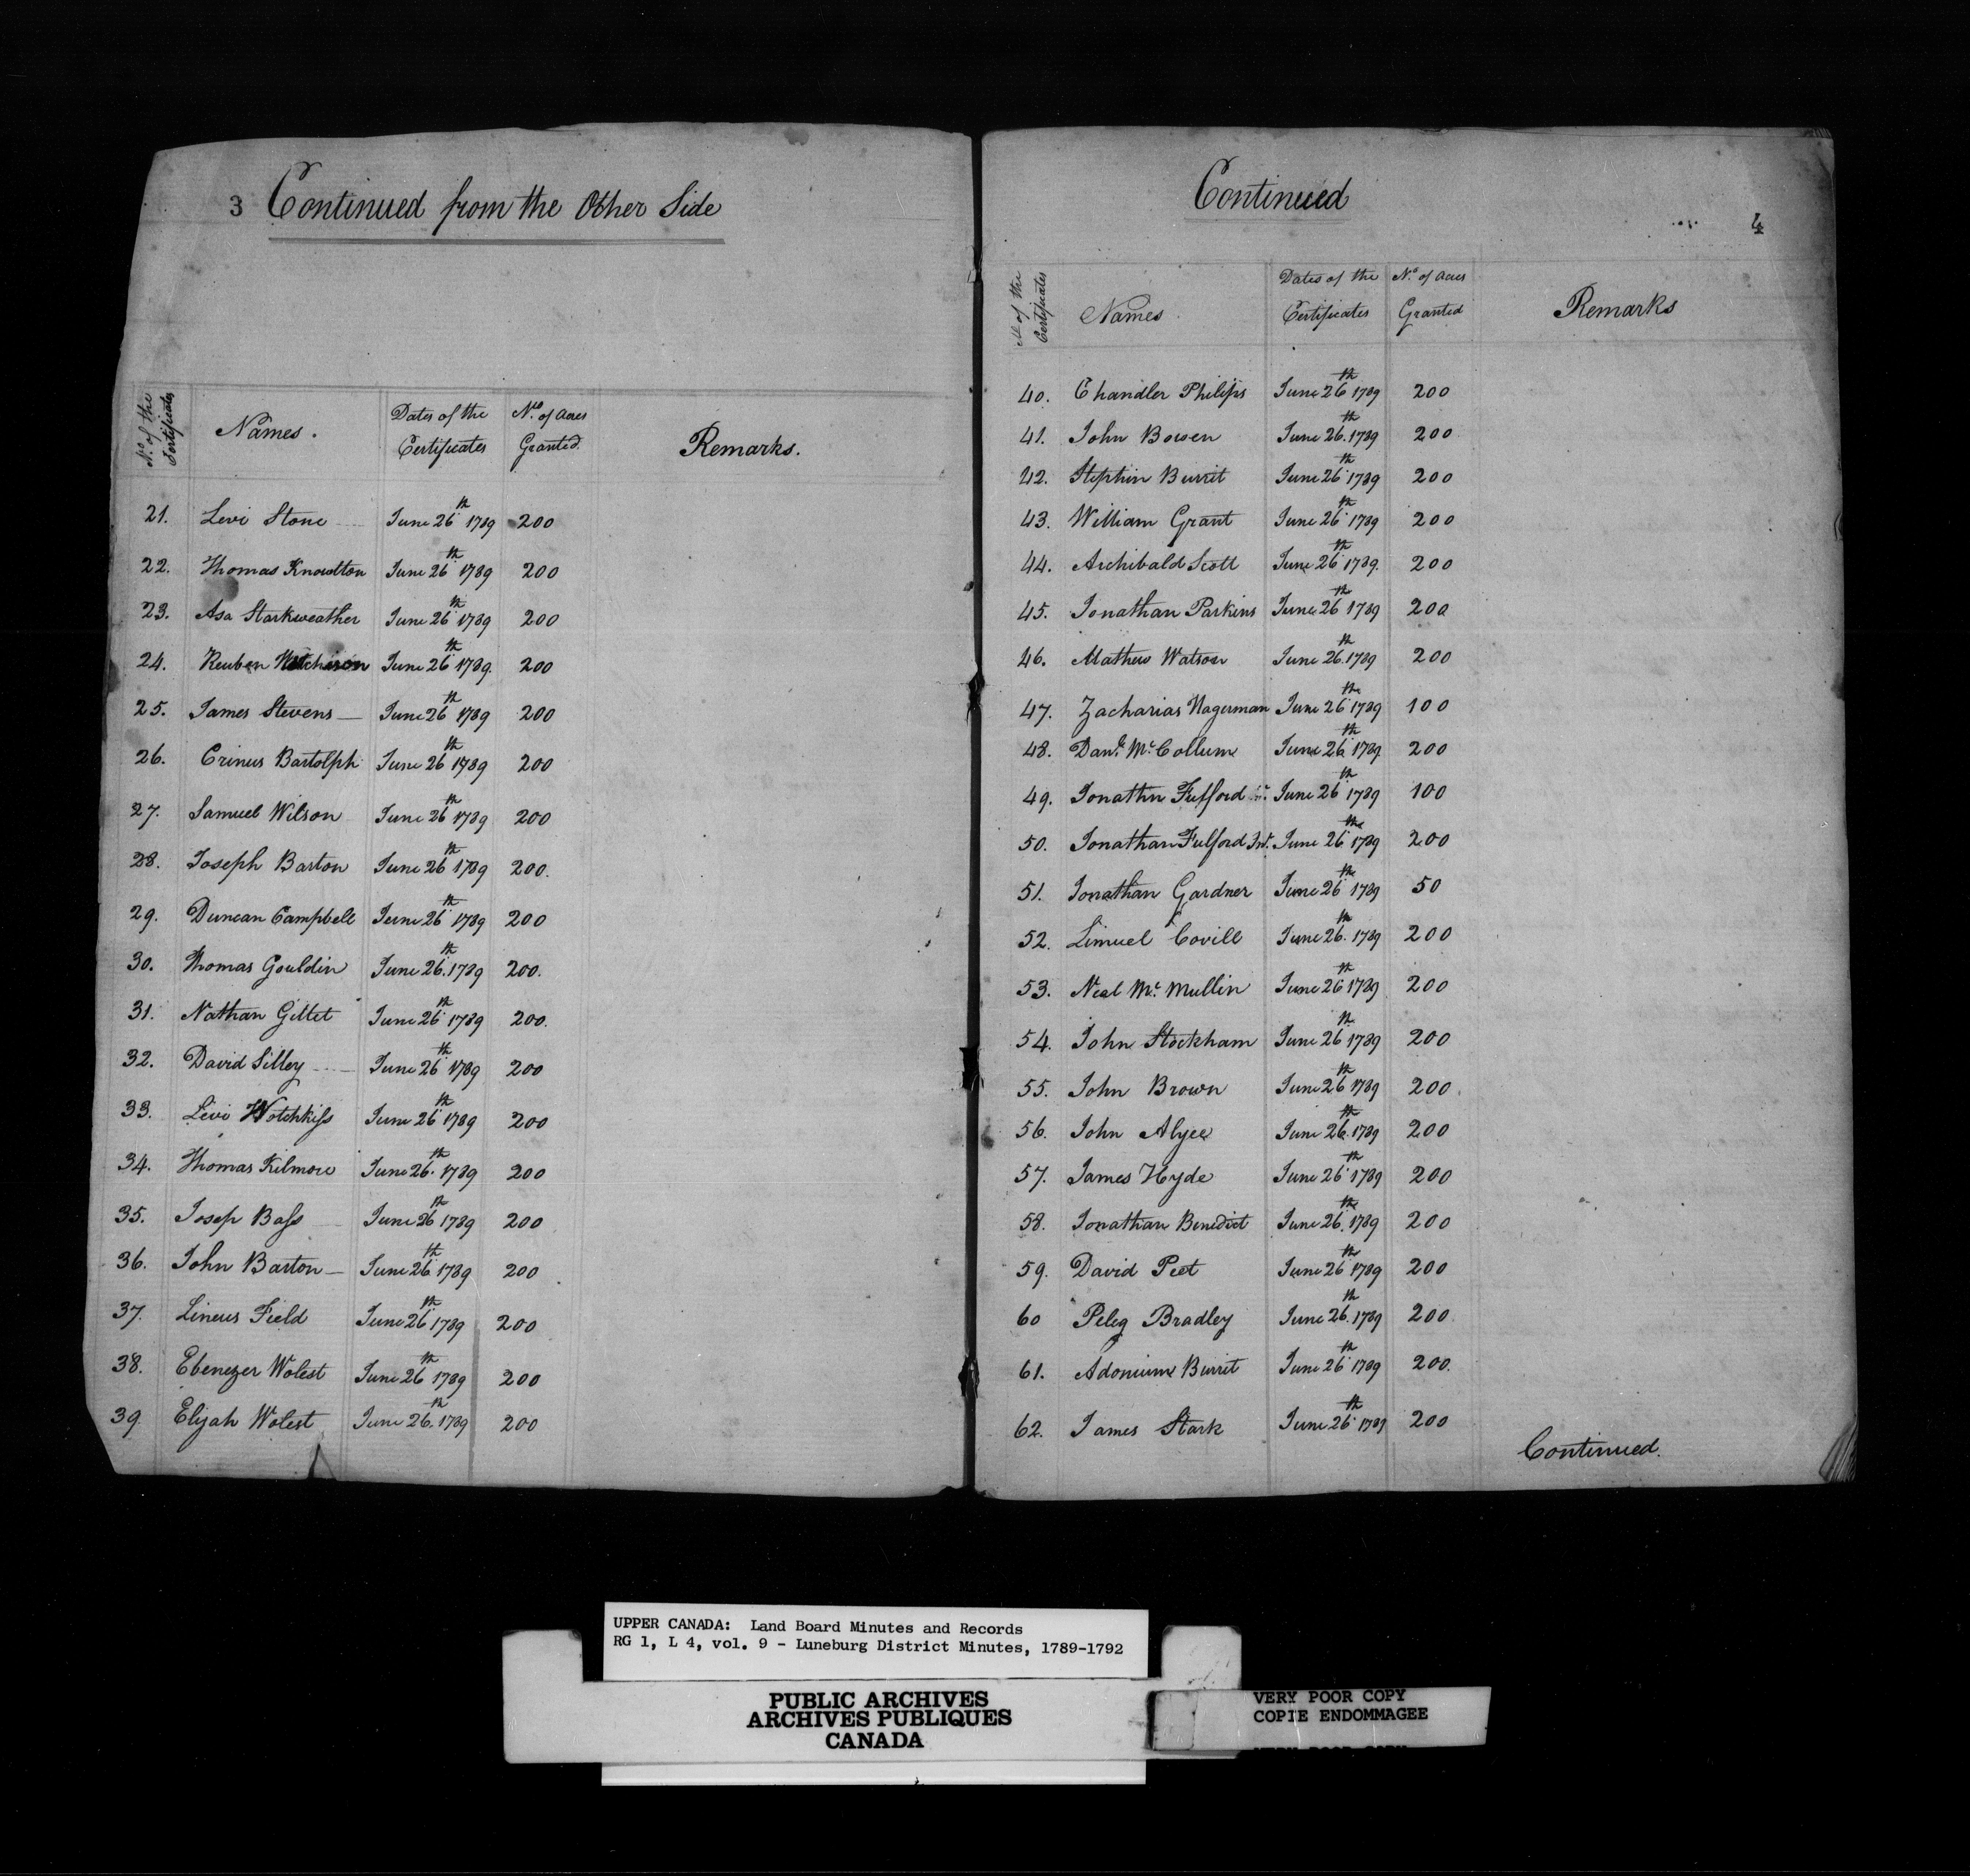 3 Continued from the Other Side
No. of the Certificates
Names.
Dates of the Certificates
Nos. of Acres Granted.
Remarks.
21. Levi Stone June 26th 1789 200
22. Thomas Knowlton June 26th 1789 200
23. Asa Starkweather June 26th 1789 200
24. Reuben Hotchison June 26th 1789. 200
25. James Stevens — June 26th 1789 200
26. Crinus Bartolph June 26th 1789 200
27. Samuel Wilson June 26th 1789 200
28. Joseph Barton June 26th 1789 200.
29. Duncan Campbell June 26th 1789 200
30. Thomas Gouldin June 26th 1789 200.
31. Nathan Gillet June 26th 1789 200.
32. David Silley June 26th 1789 200
33. Levi Hotchkiss June 26th 1789 200
34. Thomas Kilmore June 26th 1789 200
35. Josep Bass June 26th 1789 200
36. John Barton — June 26th 1789 200
37. Lineus Field June 26th 1789 200
38. Ebenezer Wolest June 26th 1789 200
39. Elijah Wolest June 26th 1789 200
Continued
4
No of the Certificates
Names.
Dates of the Certificates
No. of Acres Granted
Remarks
40. Chandler Philips June 26th 1789 200
41. John Bowen June 26th 1789 200
42. Stephin Burrit June 26th 1789 200
43. William Grant June 26th 1789 200
44. Archibald Scott June 26th 1789. 200
45. Jonathan Parkins June 26th 1789 200
46. Mathew Watson June 26th 1789 200
47. Zacharias Hagerman June 26th 1789 100
48. Danl. Mc.Collum June 26th 1789 200
49. Jonathn Fulford June 26th 1789 100
50. Jonathan Fulford Jnr. June 26th 1789 200
51. Jonathan Gardner June 26th 1789 50
52. Limuel Covill June 26th 1789 200
53. Neal Mc. Mullin June 26th 1789 200
54. John Stockham June 26th 1789 200
55. John Brown June 26th 1789 200
56. John Alyee June 26th 1789 200
57. James Hyde June 26th 1789 200
58. Jonathan Benedict June 26th 1789 200
59. David Peet June 26th 1789 200
60 Peleg Bradley June 26th 1789 200
61. Adonium Burrit June 26th 1789 200.
62. James Stark June 26th 1789 200
Continued.
UPPER CANADA: Land Board Minutes and Records
RG 1, L 4, vol. 9 - Luneburg District Minutes, 1789-1792
PUBLIC ARCHIVES
ARCHIVES PUBLIQUES
CANADA
VERY POOR COPY
COPIE ENDOMMAGEE